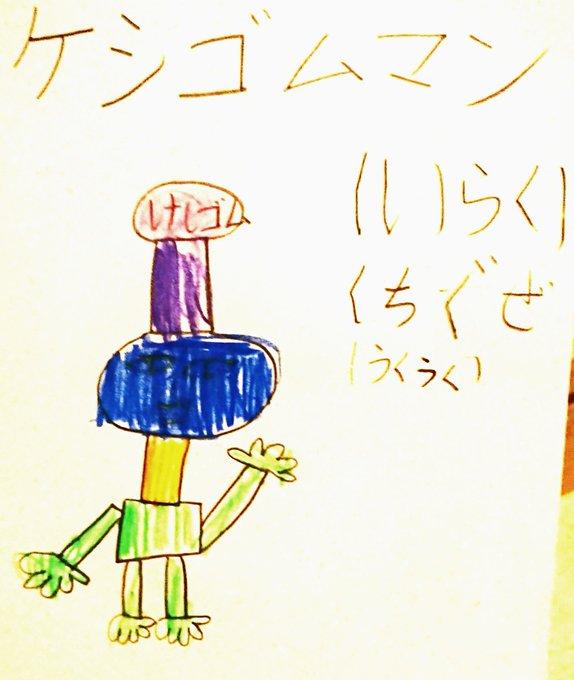 ケシゴムマン
けしゴム
(しいらく)
くちぐせ
(うくうく)